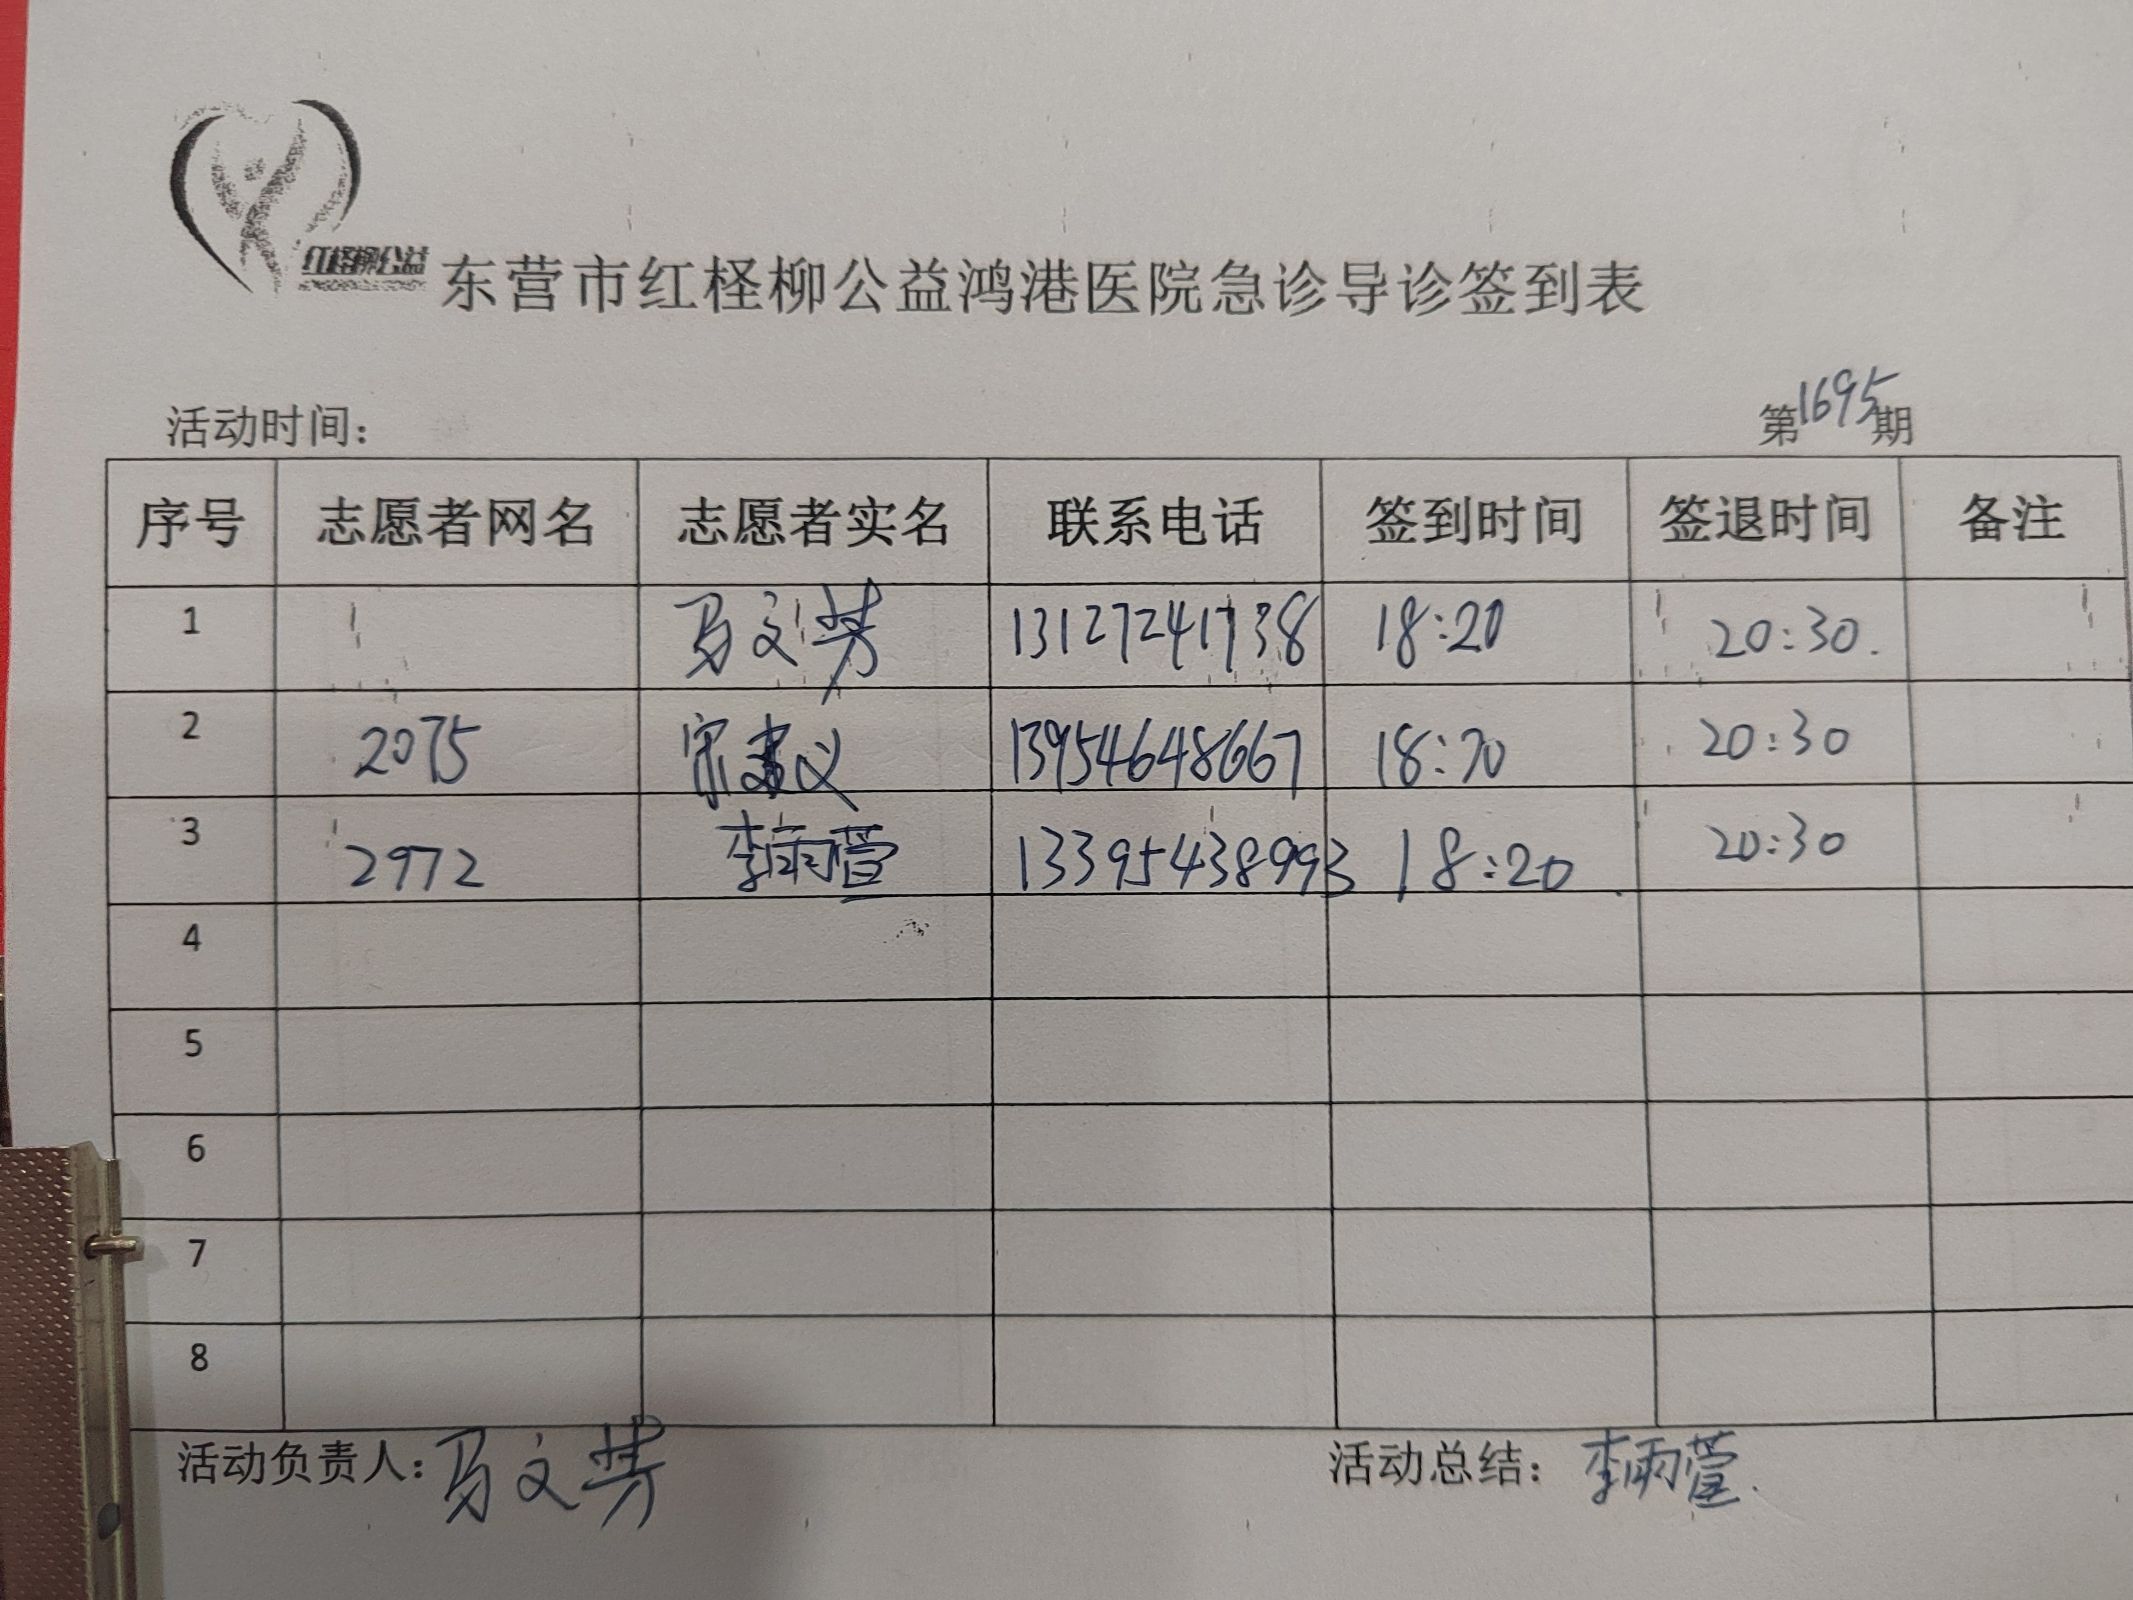 红柽柳公益
东营市红柽柳公益鸿港医院急诊导诊签到表
活动时间： 第1695期
序号 志愿者网名 志愿者实名 联系电话 签到时间 签退时间 备注
1 马文芳 13127241738 18:20 20:30.
2 2075 宋建义 13954648667 18:20 20:30
3 2972 李雨萱 13395438993 18:20 20:30
4
5
6
7
8
活动负责人：马文芳 活动总结：李雨萱.